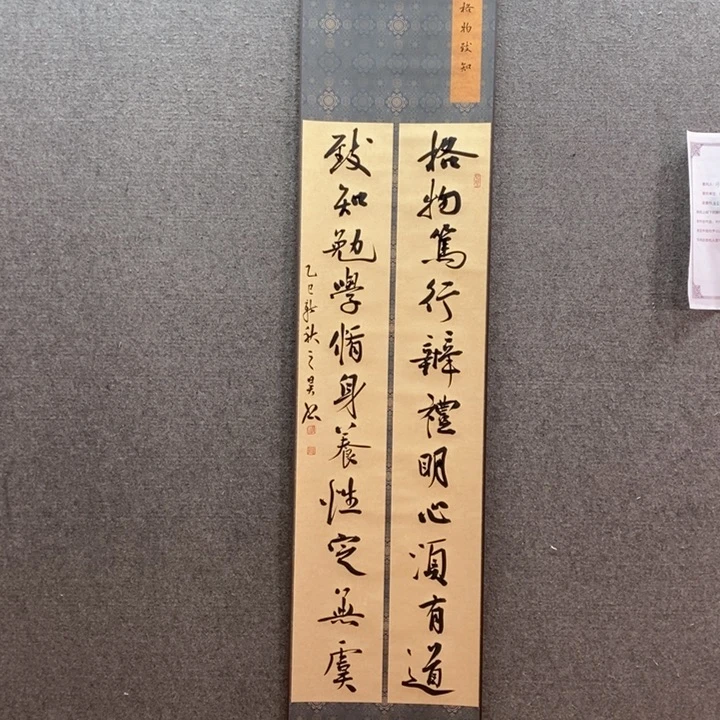 格物致知
格物篤行辦禮明心須有道
致知勉學脩身養性定無虞
乙巳新秋之昊